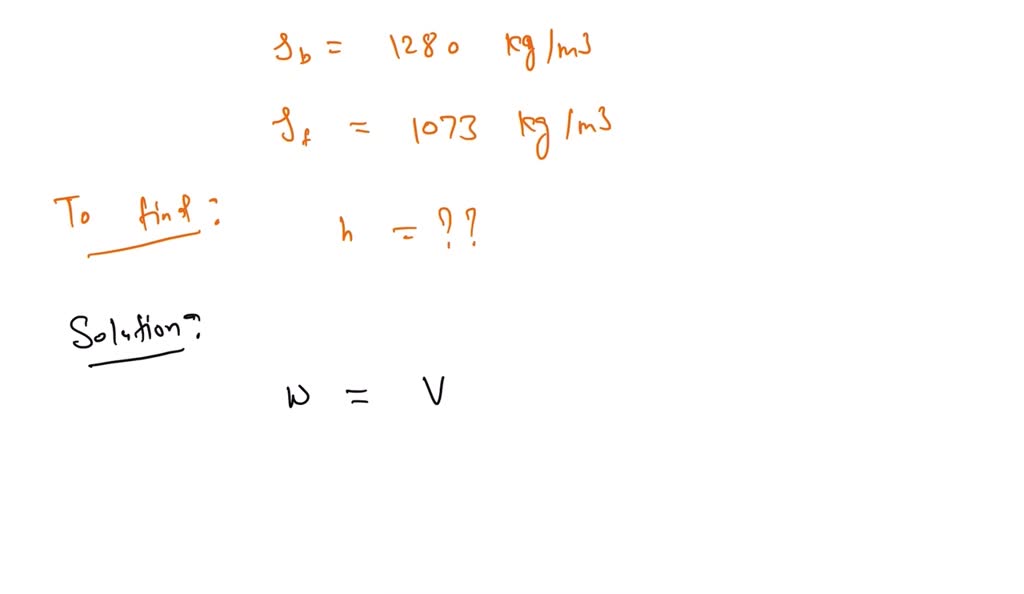 ρb = 1280 kg/m3
ρf = 1073 kg/m3
To find:
h = ??
Solution:
W = V